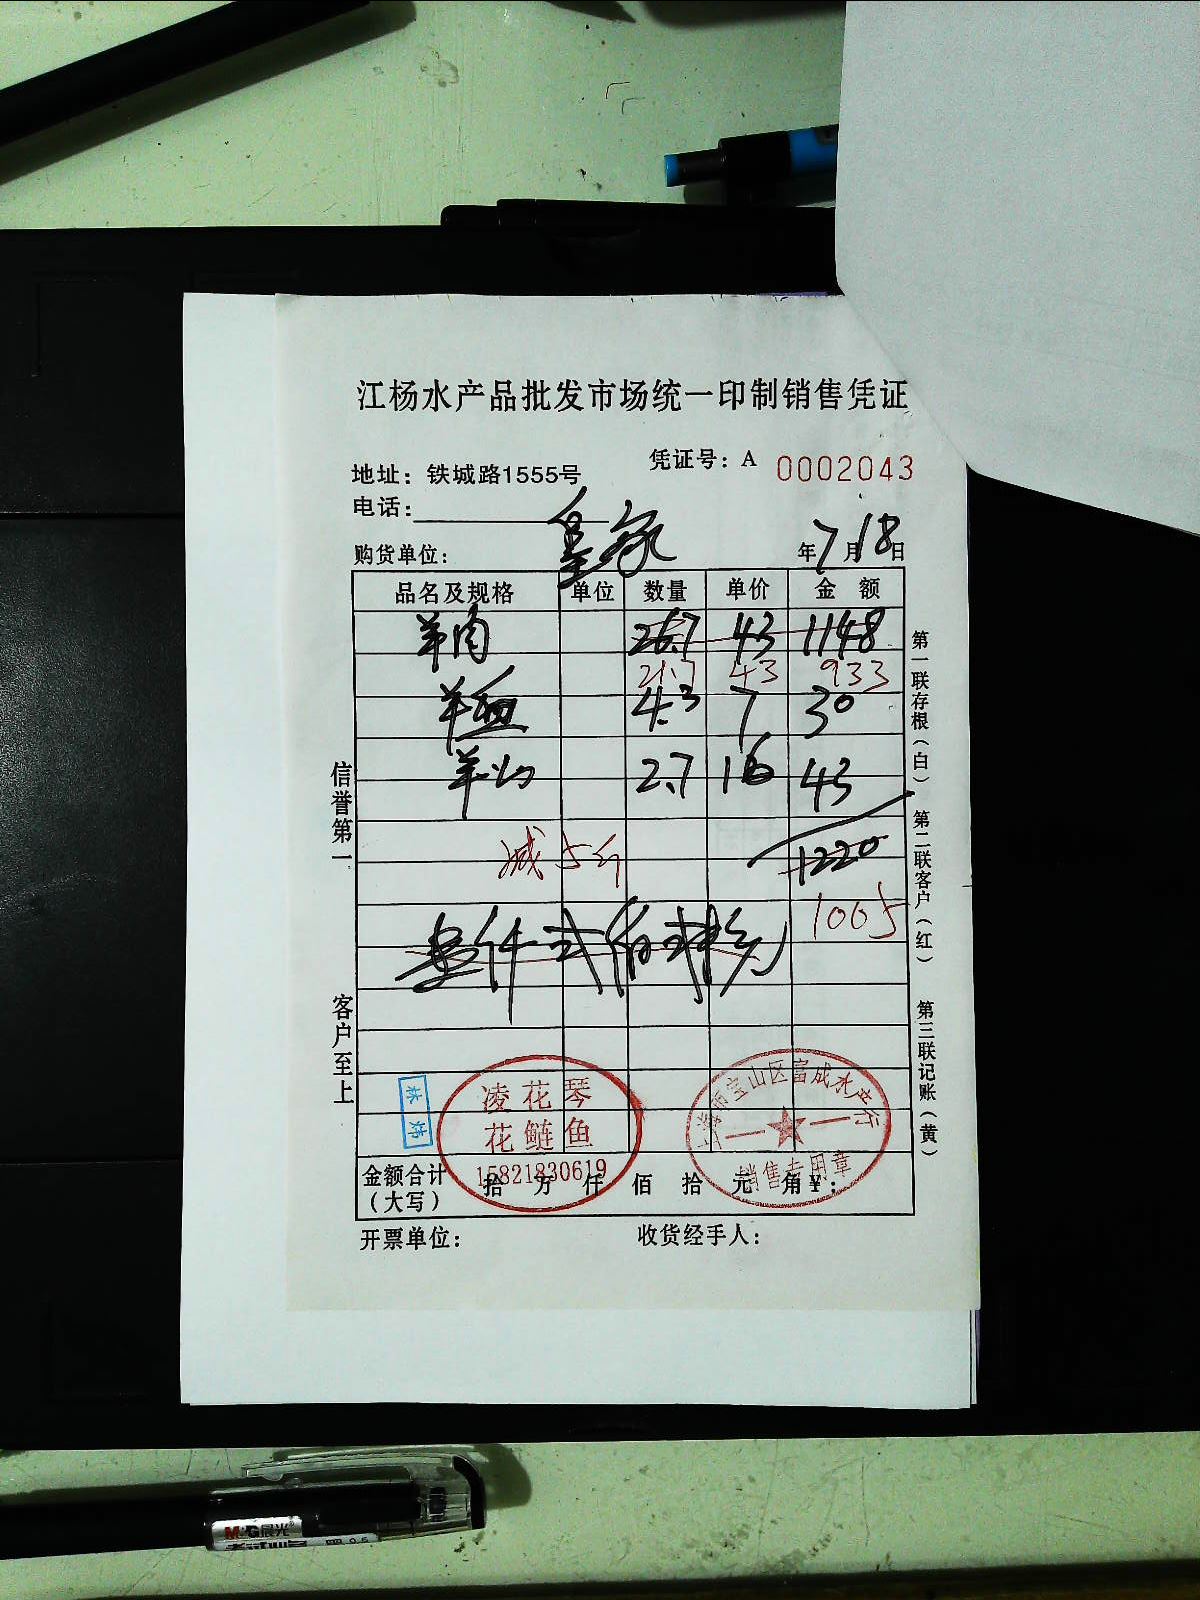 江杨水产品批发市场统一印制销售凭证
地址：铁城路1555号
凭证号：A 0002043
电话：
购货单位：
年7月18日
品名及规格 单位 数量 单价 金 额
羊肉 26.7 43 1148
21.7 43 933
羊血 4.3 7 30
羊 2.7 16 43
减5斤 1220
1005
信誉第一
客户至上
第一联存根（白）
第二联客户（红）
第三联记账（黄）
林炜
凌花琴
花鲢鱼
15821830619
上海市宝山区富成水产行
销售专用章
金额合计（大写） 拾 万 仟 佰 拾 元 角 ¥：
开票单位：
收货经手人：
M&G晨光